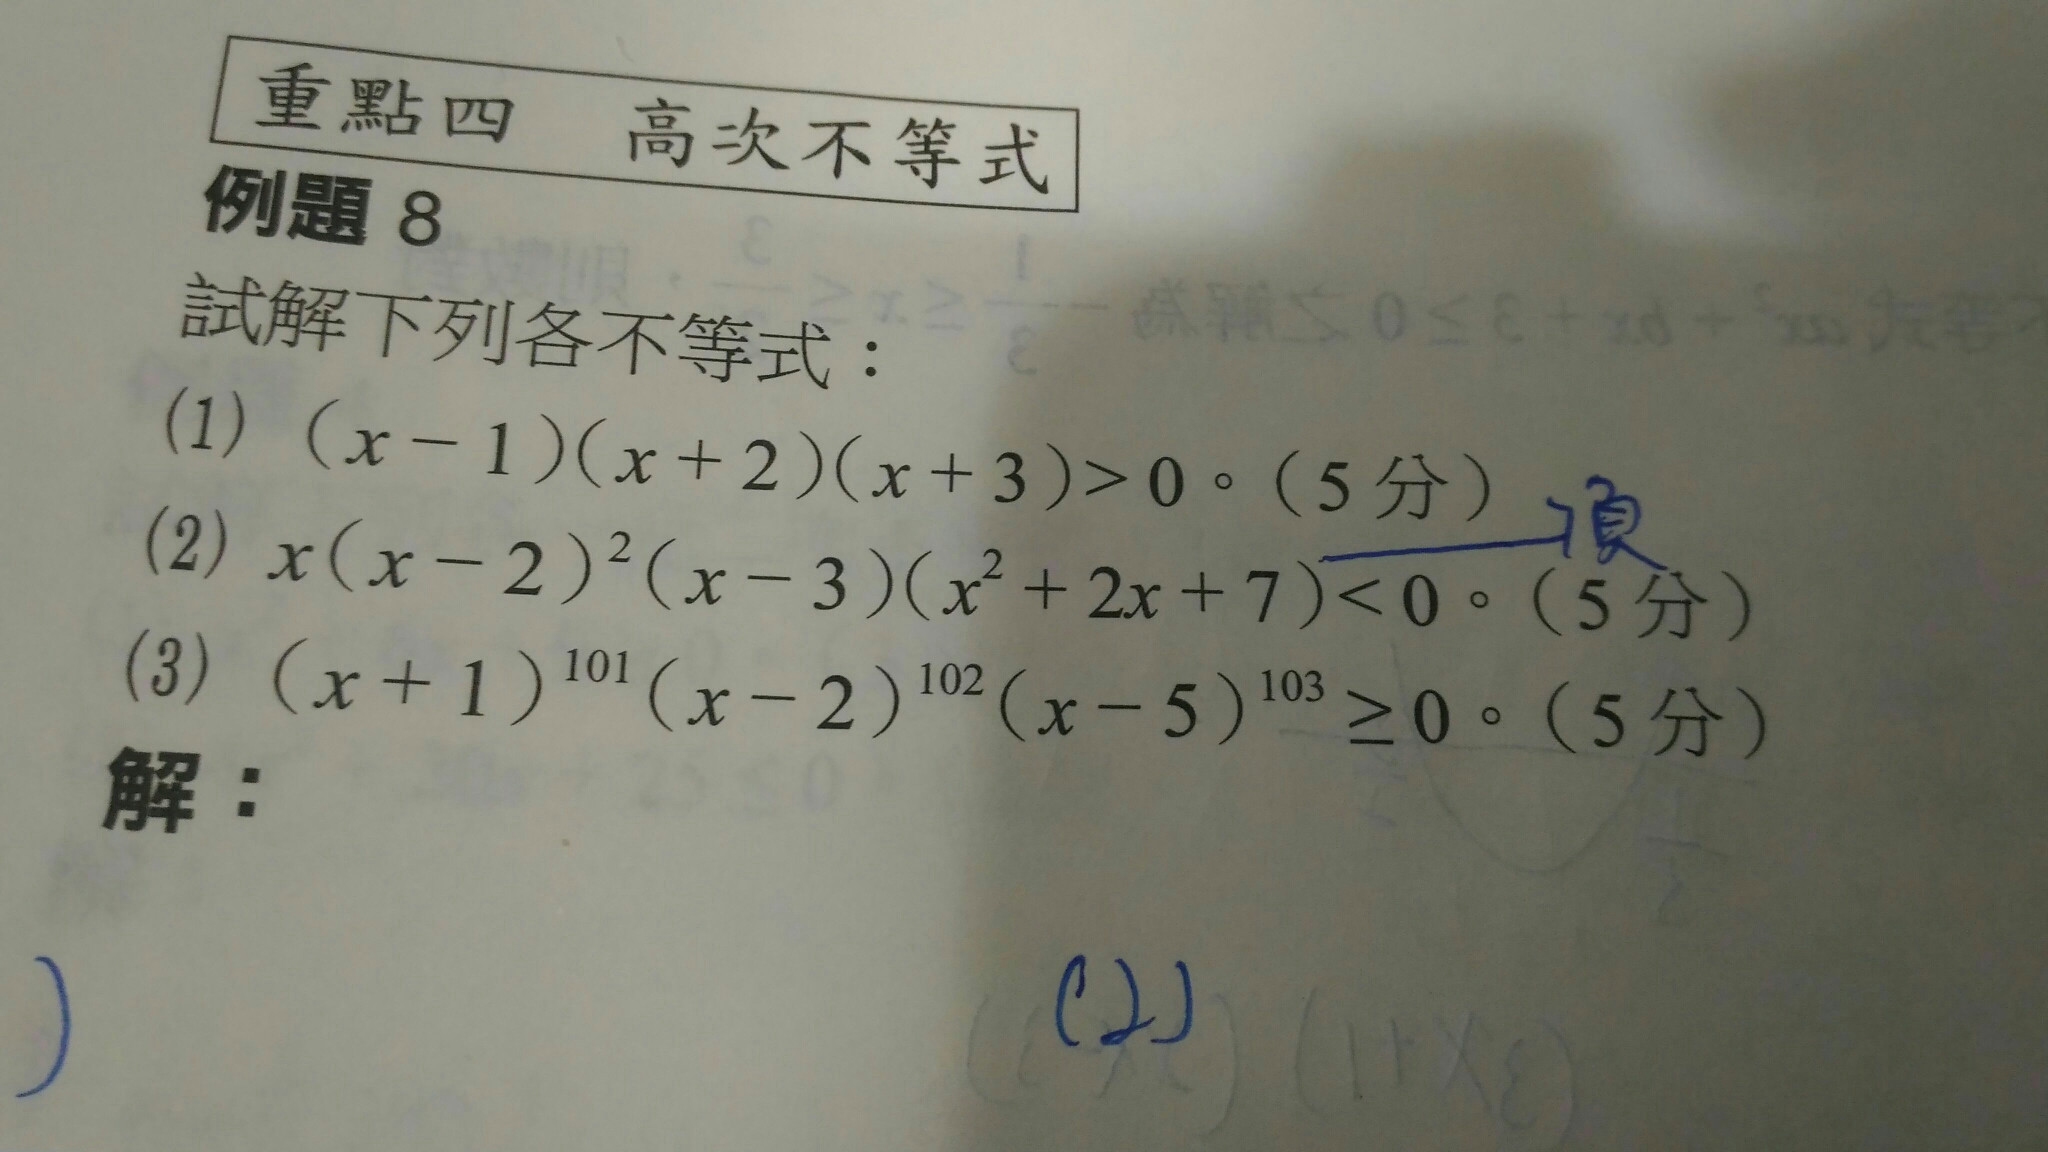 重點四 高次不等式
例題 8
試解下列各不等式：
(1) (x－1)(x＋2)(x＋3)＞0。(5 分)
(2) x(x－2)²(x－3)(x²＋2x＋7)＜0。(5 分)
(3) (x＋1)¹⁰¹(x－2)¹⁰²(x－5)¹⁰³≥0。(5 分)
解：
(2)